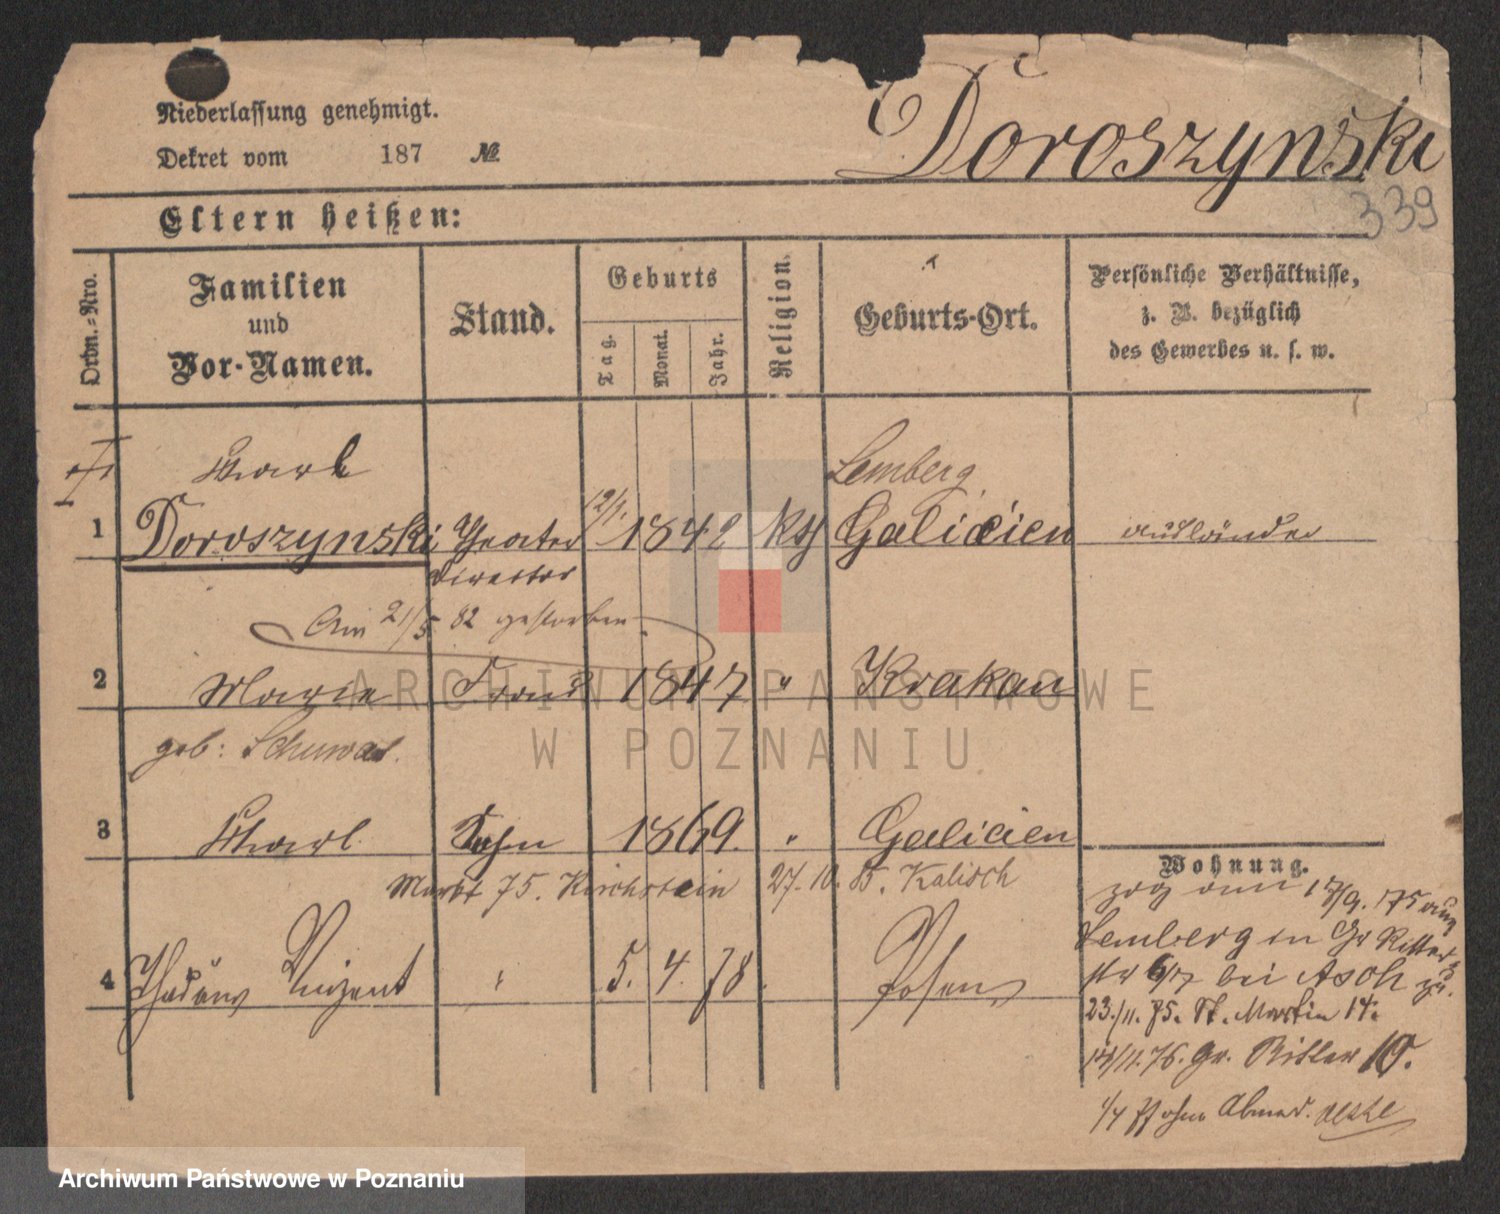 Doroszynski
339
Niederlassung genehmigt.
Dekret vom 187 №
Eltern heißen:
Ordn.=Nro.
Familien
und
Vor-Namen.
Stand.
Geburts
Tag.
Monat.
Jahr.
Religion.
Geburts-Ort.
Persönliche Verhältnisse,
z. B. bezüglich
des Gewerbes u. s. w.
Karl Lemberg
1 Doroszynski Theater 12/1. 1842 kth Galicien Ausländer
Director
Am 21/5 82 gestorben
2 Marie Frau 1847 " Krakau
geb:
3 Karl Sohn 1869. " Galicien
Markt 75. Kirchstein 27.10.85. Kalisch
4 Thadäus Vinzent " 5. 4. 78. Posen
Wohnung.
zog am 17/9. 75 aus
Lemberg in Gr Ritter
str 6/7 bei Asch zu.
23./11. 75. St. Martin 14.
14/11. 76. Gr. Ritter 10.
1/4 77 ohne Abmed.
ARCHIWUM PAŃSTWOWE
W POZNANIU
Archiwum Państwowe w Poznaniu